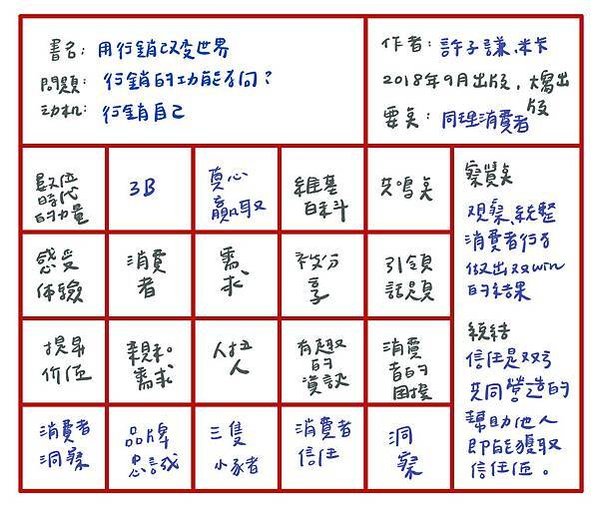 書名: 用行銷改变世界
問題: 行銷的功能為何？
动机: 行銷自己
作者: 許子謙.米卡
2018年9月出版，大寫出版
要点: 同理消費者
數位
時代
的力量
3B
真心
贏取
維基
百科
共鳴点
感受
体驗
消費
者
需
求
被分
享
引領
話題
提昇
价值
親和
需求
人拉
人
有趣
的
資訊
消費
者的
困擾
消費者
洞察
品牌
忠誠
三隻
小豬
消費者
信任
洞
察
察覺点
观察.統整
消費者行為
做出双win
的結果
總結
信任是双方
共同營造的
幫助他人
即能獲取
信任值。